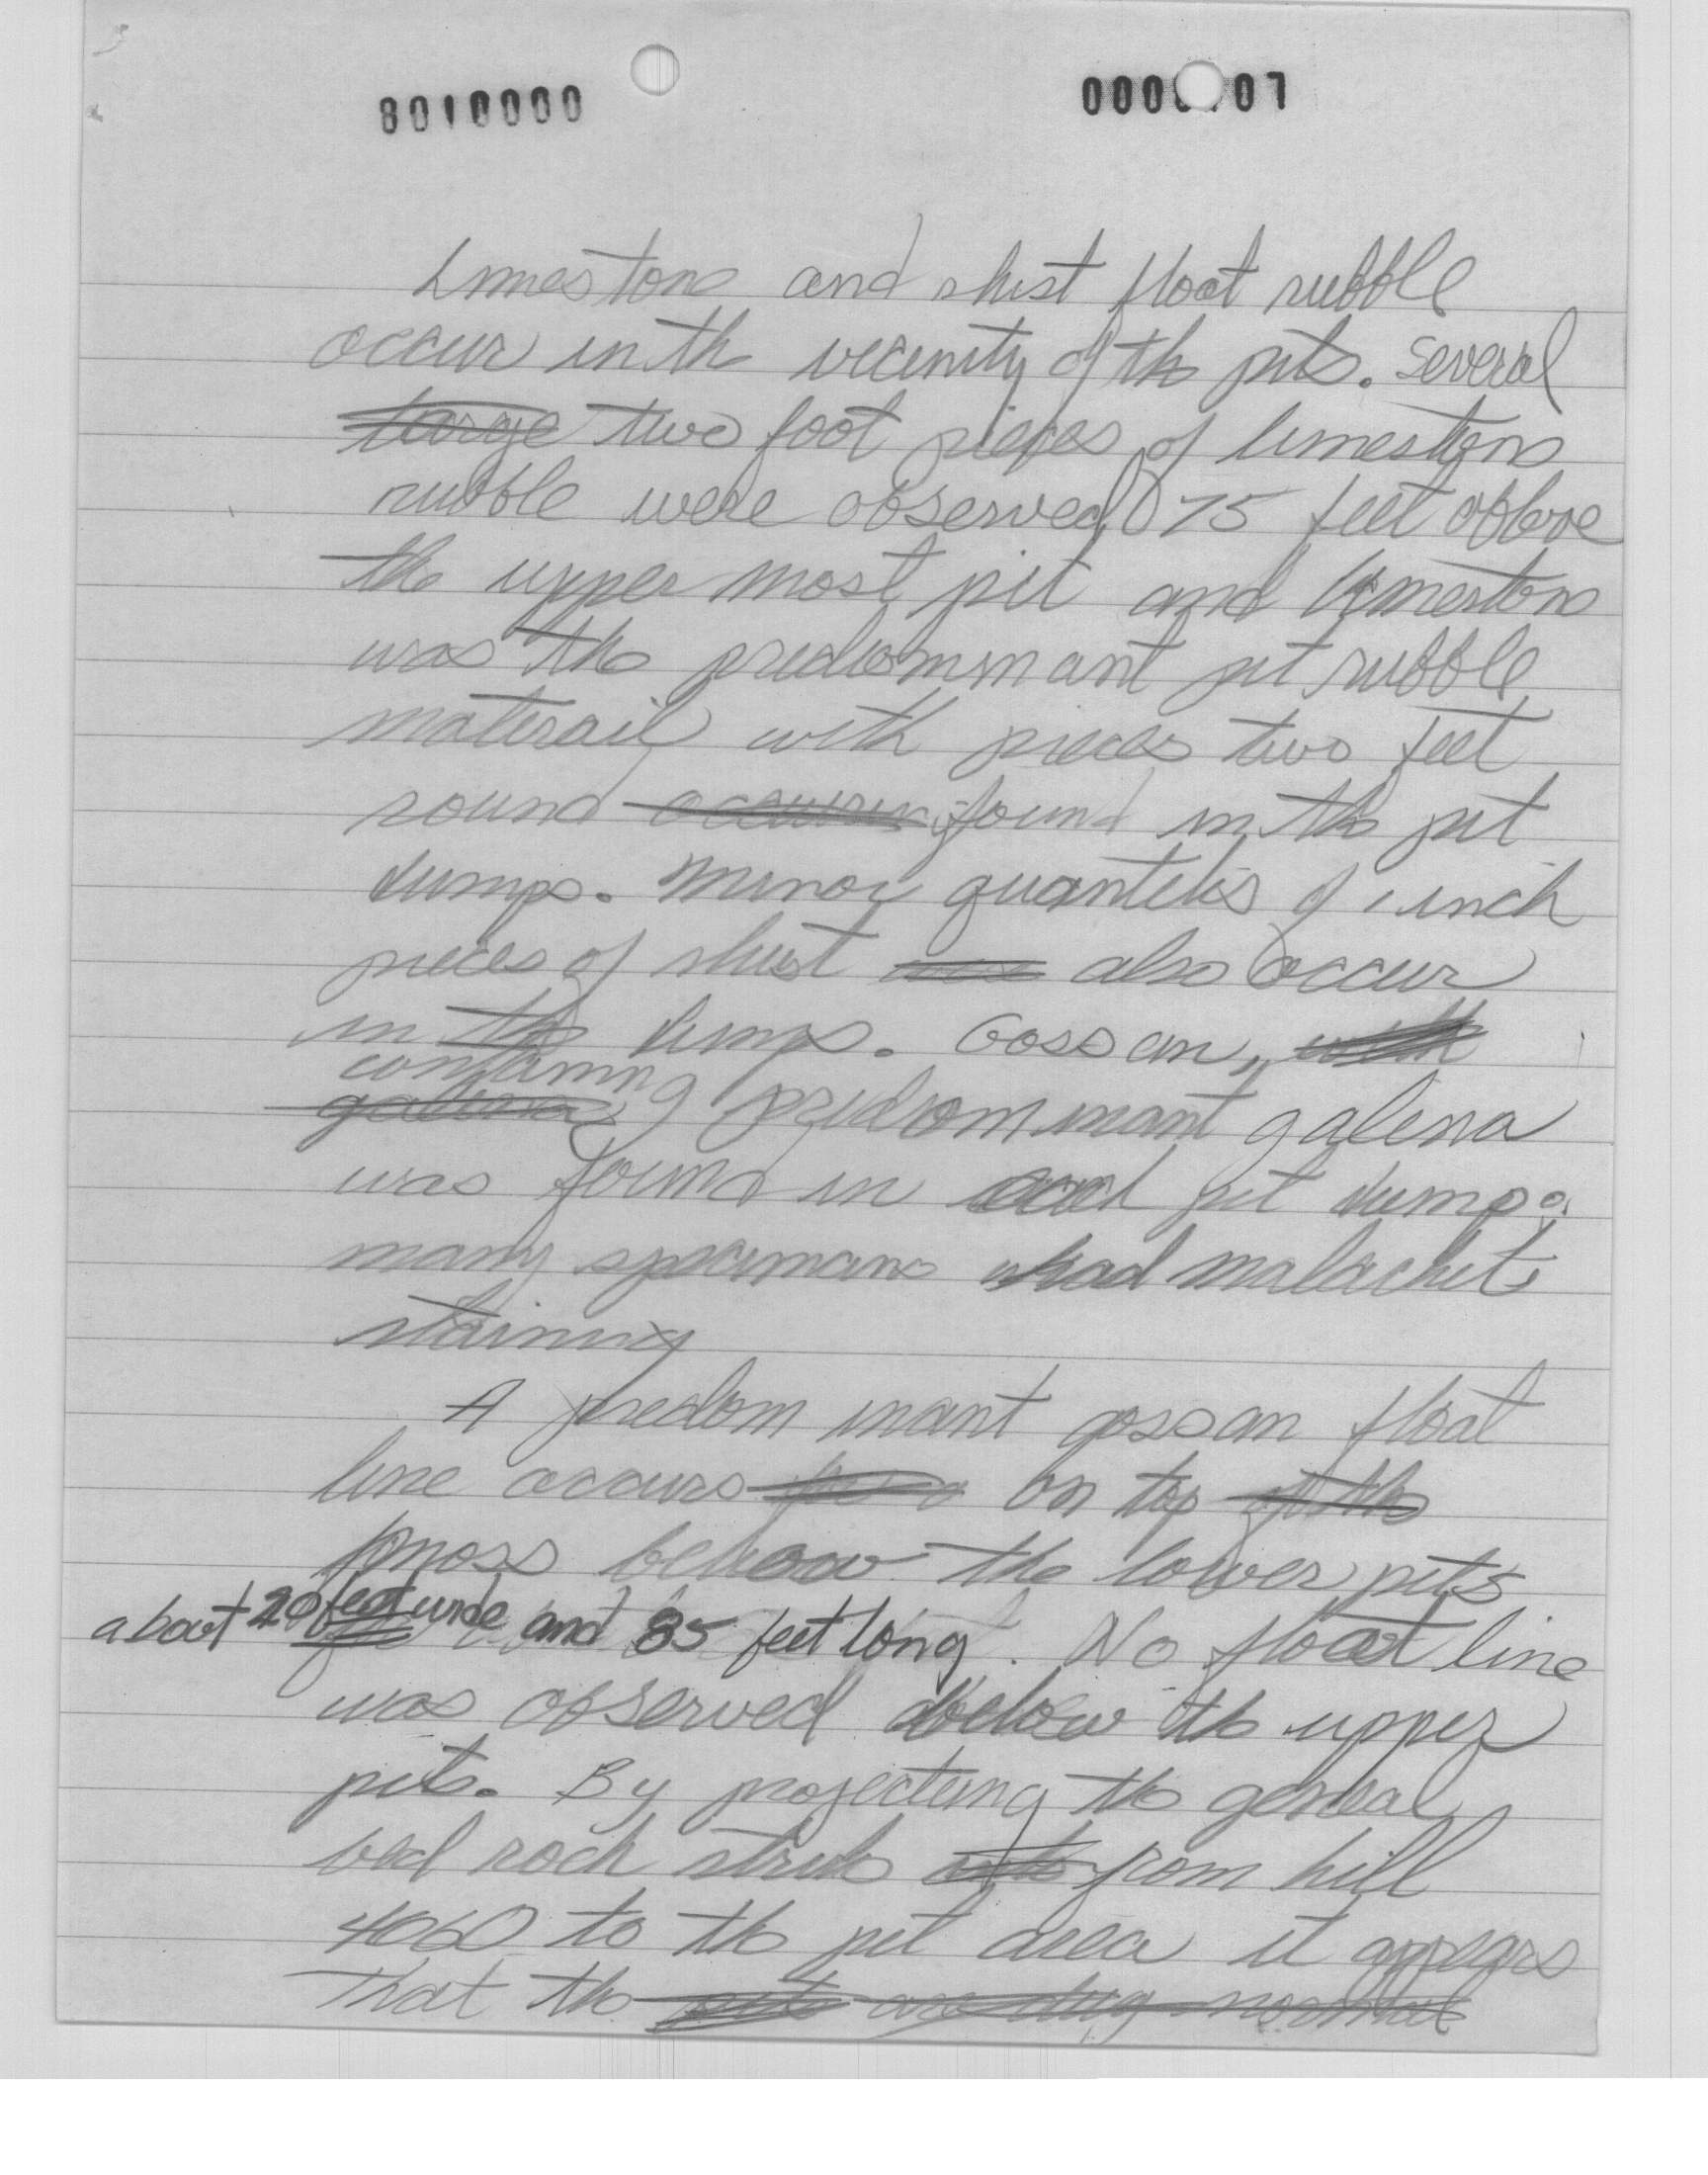 8010000 0000 07
Limestone and shist float rubble
occur in the vecinity of the pits. Several
large two foot pieces of limestone
rubble were observed 75 feet above
the upper most pit and limestone
was the predominant pit rubble
materail with pieces two feet
round occuring found in the pit
dumps. Minor quantitis of 1 inch
pieces of shist also occur
in the dumps. Gossan, with
containing
galena predominant galena
was found in each pit dump.
many specimans had malachite
staining
A predominant gossan float
line occurs on top of the
moss below the lower pits
about 20 feet wide and 85 feet long. No float line
was observed below the upper
pits. By projecting the general
bed rock strike from hill
4060 to the pit area it appears
that the pits are dug normal